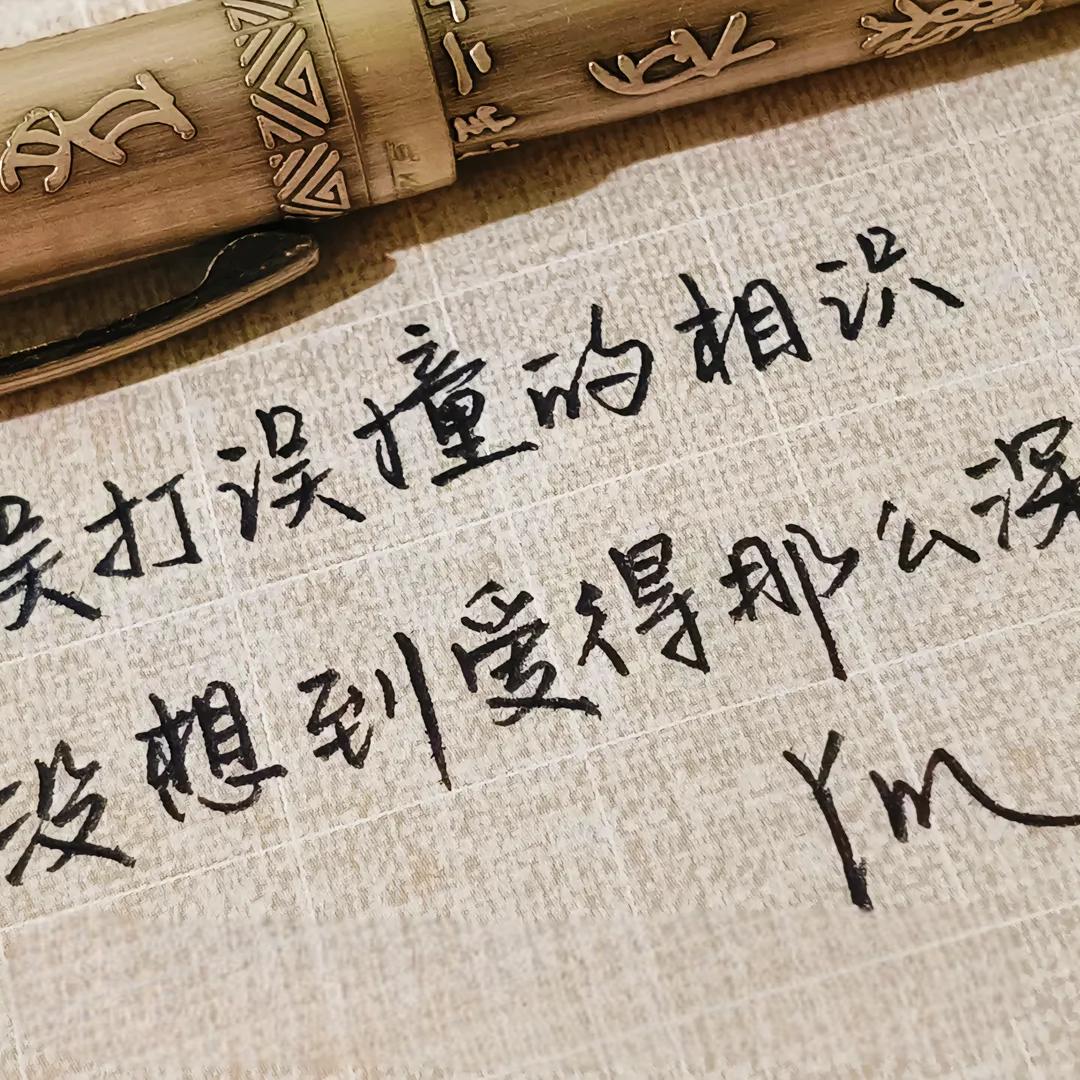 误打误撞的相识
没想到爱得那么深
Ym